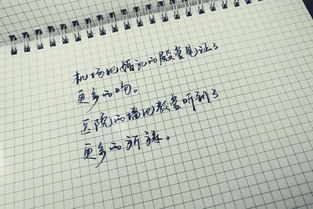 机场比婚礼的殿堂见证了
更多的吻。
医院的墙比教堂听到了
更多的祈祷。